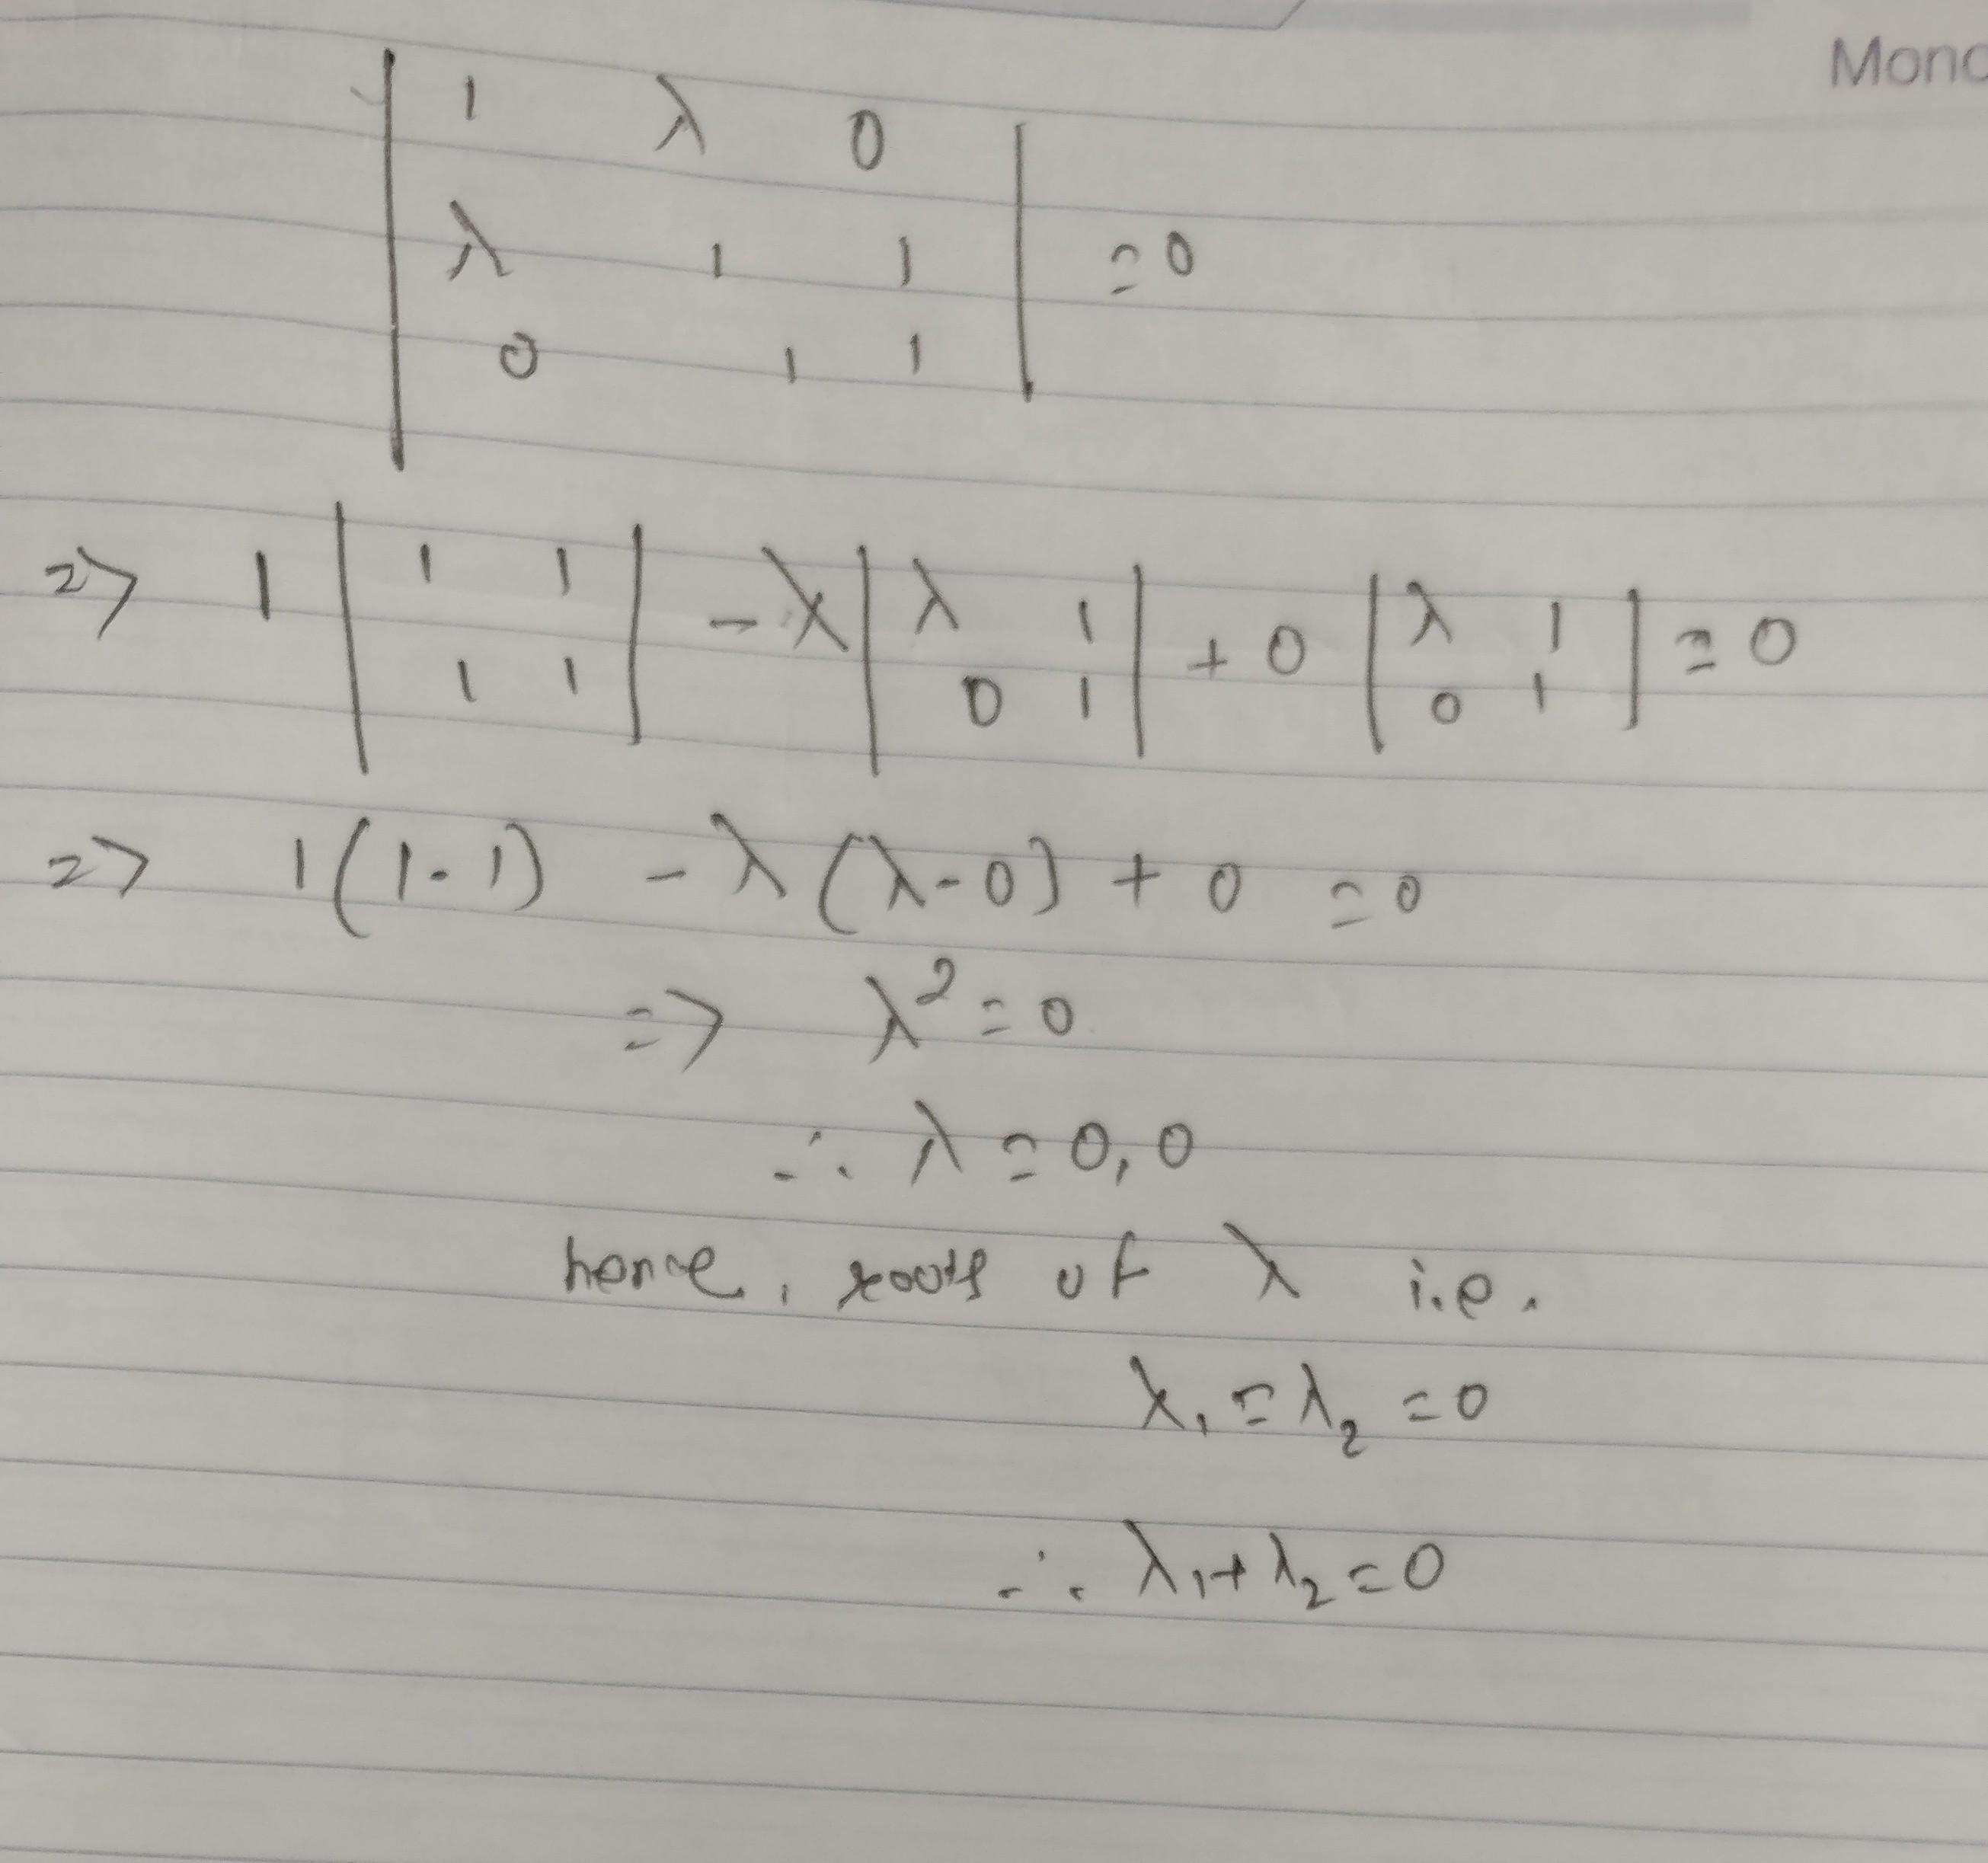 Mond
| 1 λ 0 |
| λ 1 1 | = 0
| 0 1 1 |
=> 1 | 1 1 | - λ | λ 1 | + 0 | λ 1 | = 0
| 1 1 | | 0 1 | | 0 1 |
=> 1(1-1) - λ(λ-0) + 0 = 0
=> λ² = 0
∴ λ = 0, 0
hence, roots of λ i.e.
λ₁ = λ₂ = 0
∴ λ₁ + λ₂ = 0